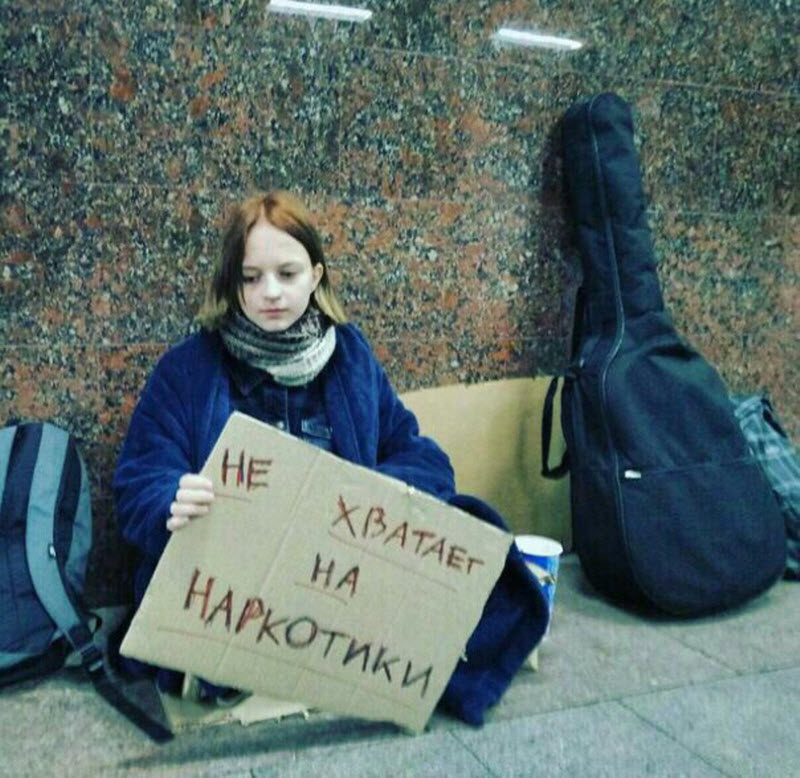 НЕ
ХВАТАЕТ
НА
НАРКОТИКИ